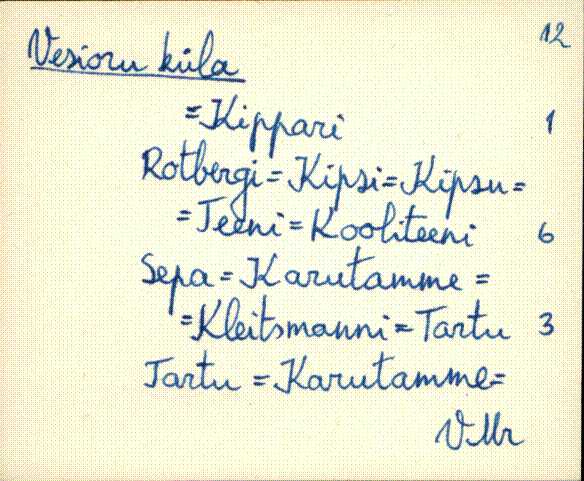 12
Vesioru küla
=Kippari 1
Rotbergi=Kipsi=Kipsu=
=Teeni=Koohteeni 6
Sepa=Karutamme=
=Kleitsmanni=Tartu 3
Tartu=Karutamme=
VMr